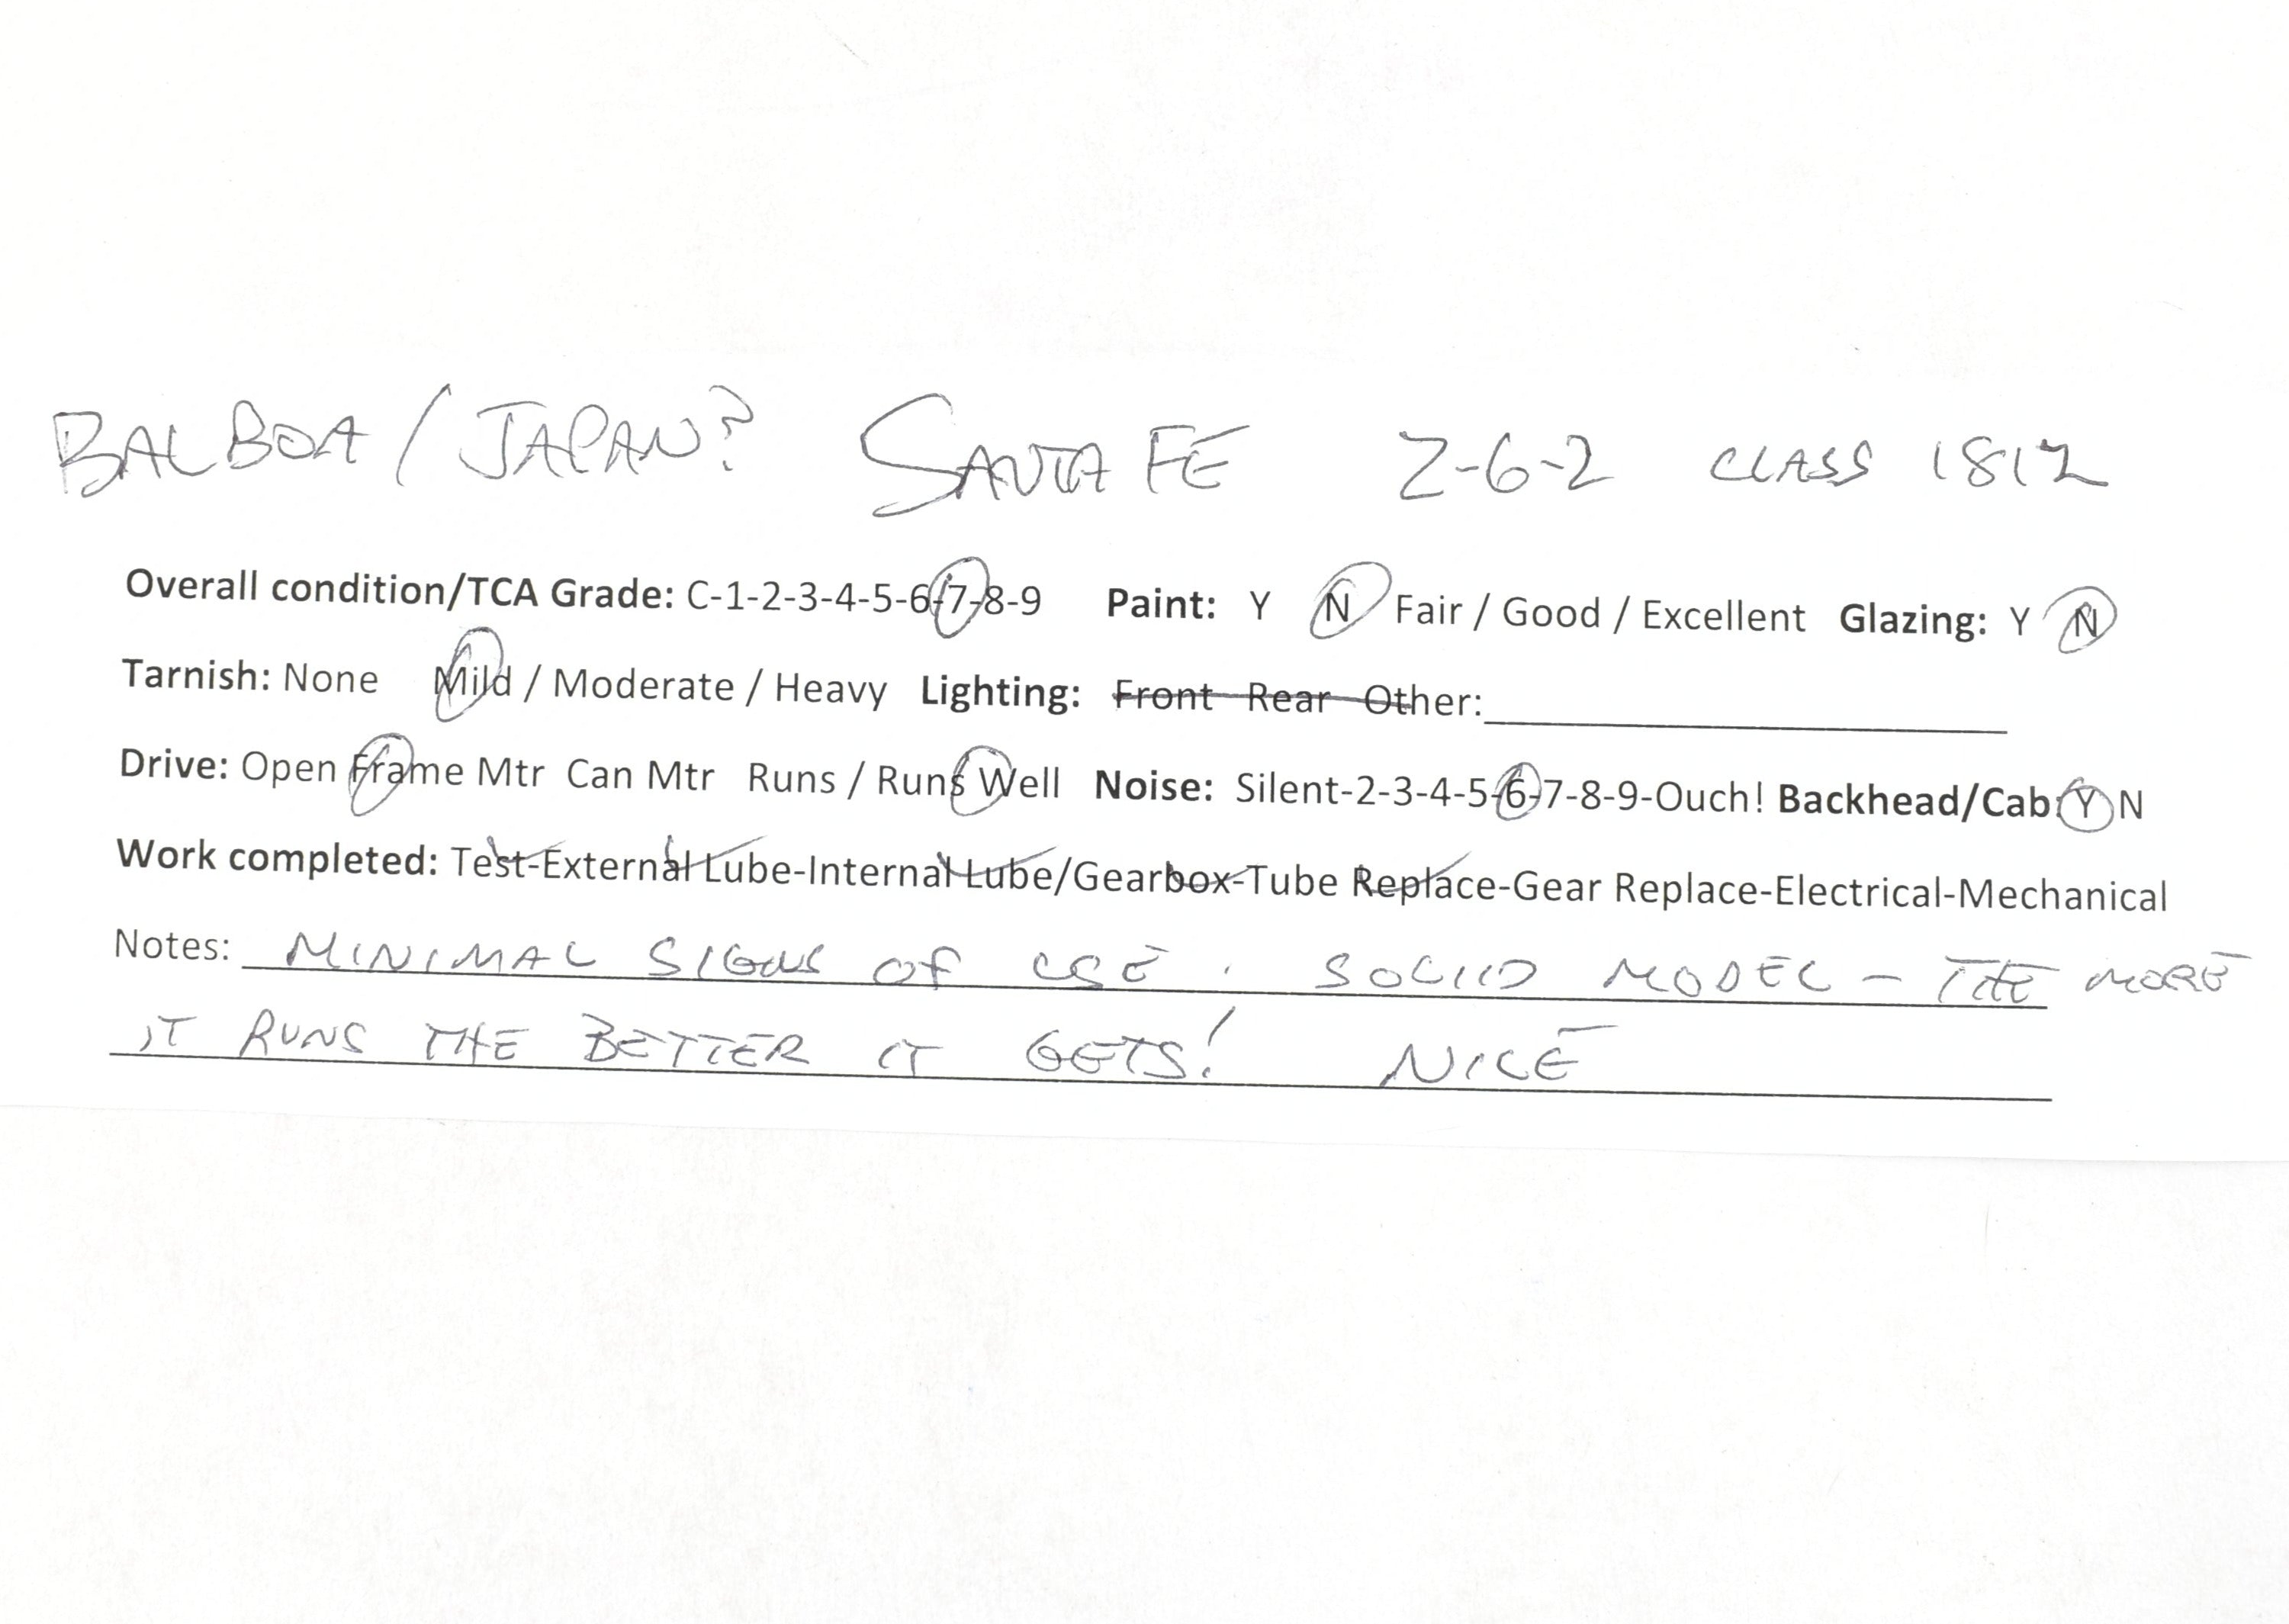 BALBOA / JAPAN? SANTA FE 2-6-2 CLASS 1812
Overall condition/TCA Grade: C-1-2-3-4-5-6-7-8-9 Paint: Y N Fair / Good / Excellent Glazing: Y N
Tarnish: None Mild / Moderate / Heavy Lighting: Front Rear Other:
Drive: Open Frame Mtr Can Mtr Runs / Runs Well Noise: Silent-2-3-4-5-6-7-8-9-Ouch! Backhead/Cab: Y N
Work completed: Test-External Lube-Internal Lube/Gearbox-Tube Replace-Gear Replace-Electrical-Mechanical
Notes: MINIMAL SIGNS OF USE. SOLID MODEL - THE MORE
IT RUNS THE BETTER IT GETS! NICE